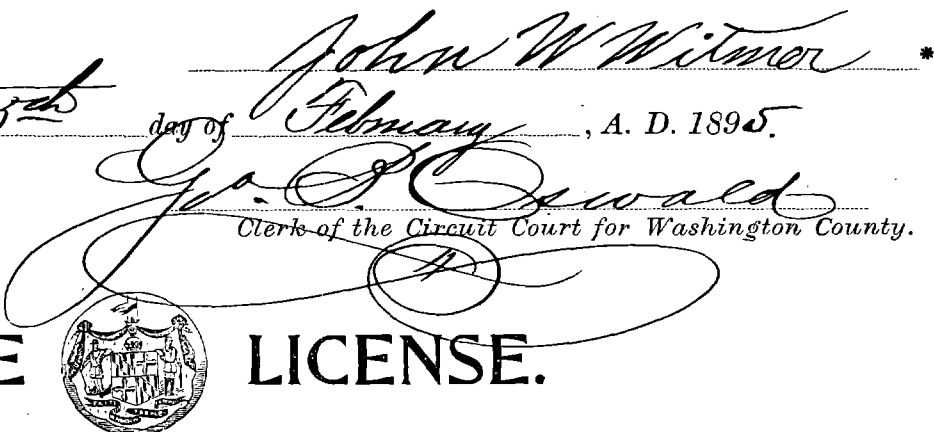 John W Witmer *
day of February, A. D. 1895.
Geo. B. Oswald
Clerk of the Circuit Court for Washington County.
E LICENSE.